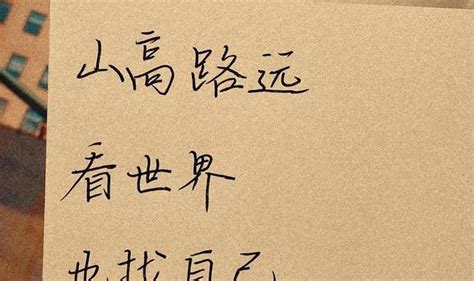 山高路远
看世界
也找自己